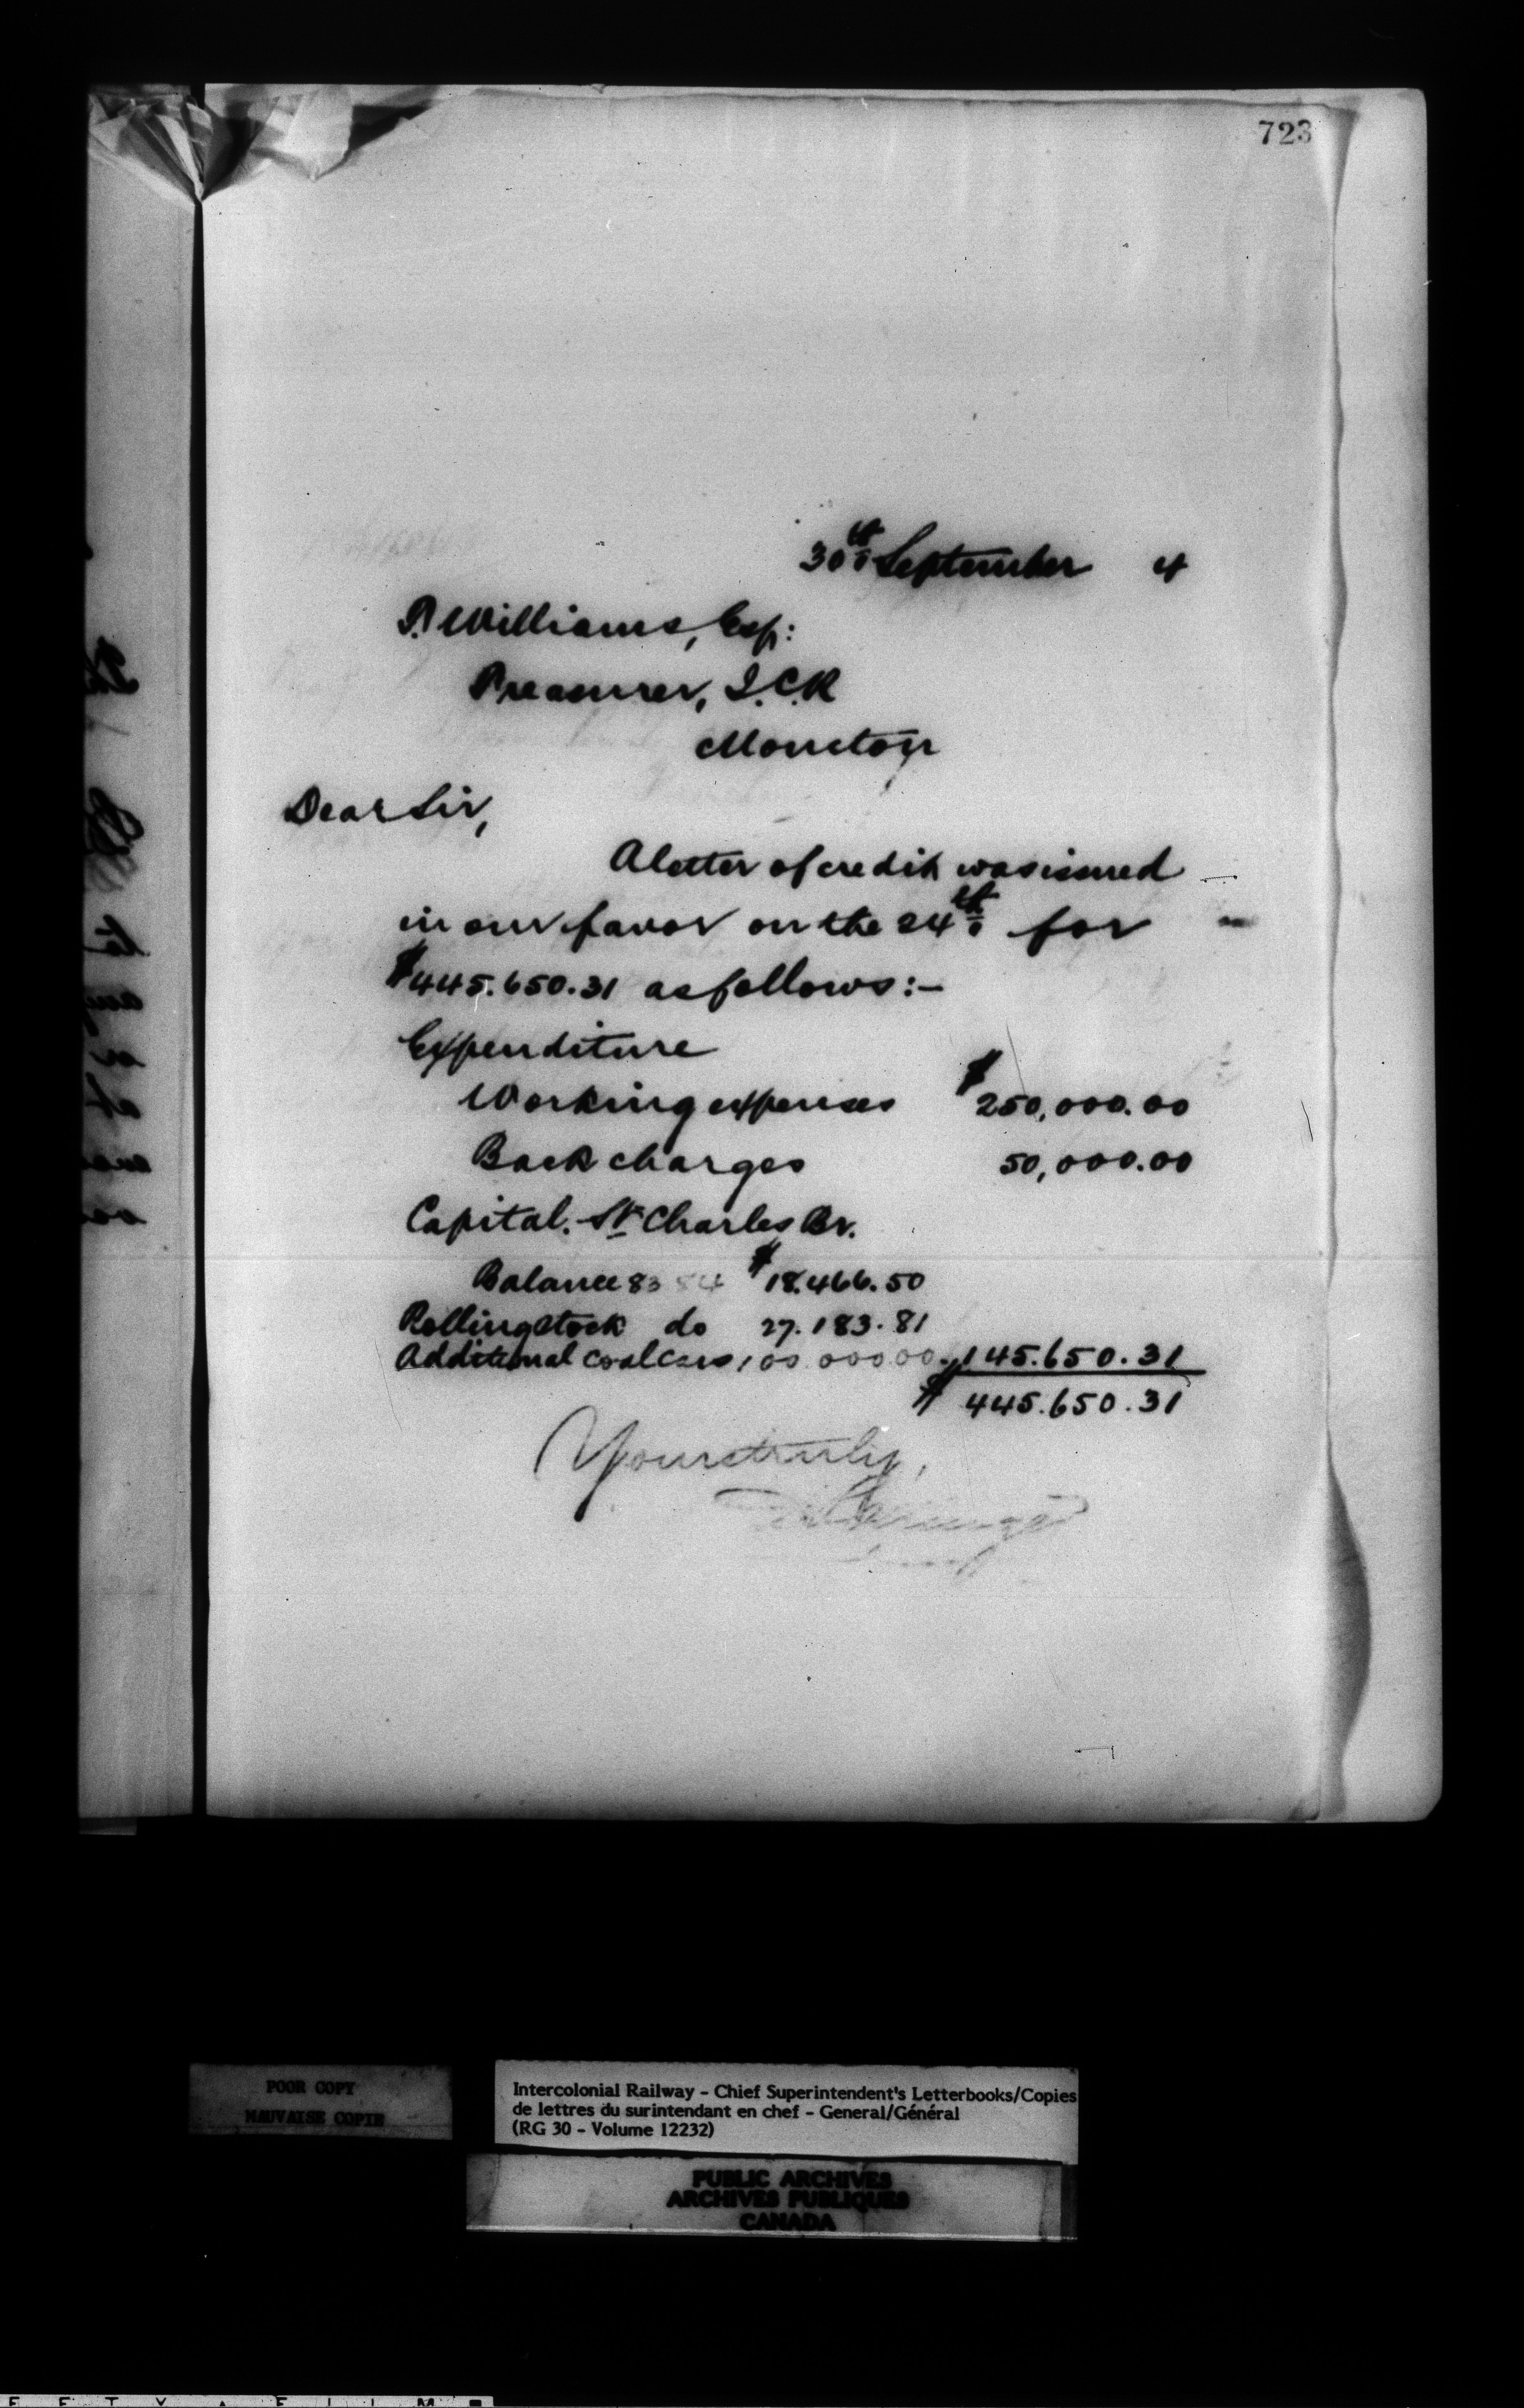 723
30th September 4
T. Williams, Esq:
Treasurer, I.C.R
Moncton
Dear Sir,
A letter of credit was issued
in our favor on the 24th for
$445.650.31 as follows:-
Expenditure
Working expenses $250,000.00
Back charges 50,000.00
Capital. St Charles Br.
Balance 83 84 $18.466.50
Rolling stock do 27.183.81
Additional coal cars 100 000 00 145.650.31
$ 445.650.31
Yours truly,
POOR COPY
MAUVAISE COPIE
Intercolonial Railway - Chief Superintendent's Letterbooks/Copies
de lettres du surintendant en chef - General/Général
(RG 30 - Volume 12232)
PUBLIC ARCHIVES
ARCHIVES PUBLIQUES
CANADA